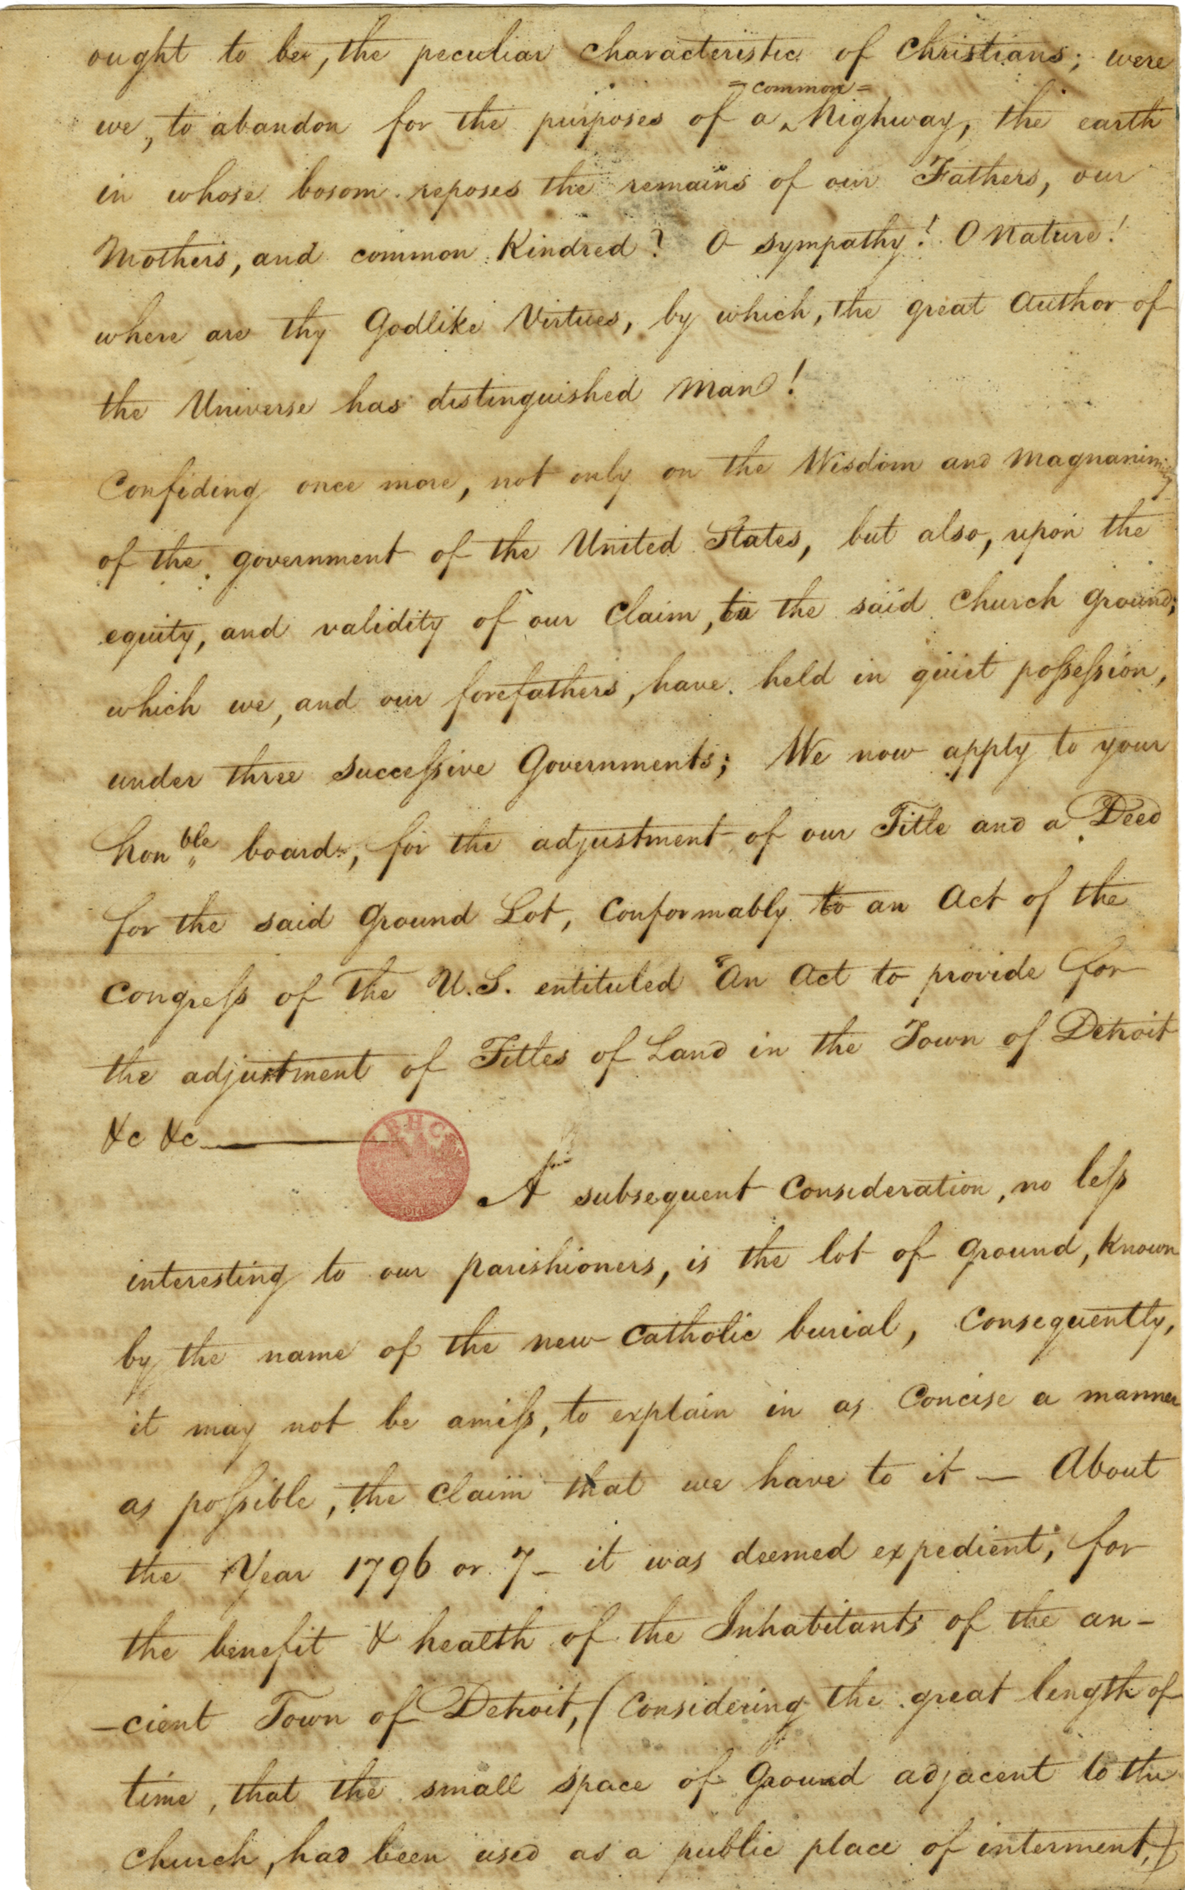 ought to be, the peculiar characteristic of Christians; were
= common =
we, to abandon for the purposes of a ^ Highway, the earth
in whose bosom reposes the remains of our Fathers, our
Mothers, and common Kindred? O sympathy! O Nature!
where are thy Godlike Virtues, by which, the great Author of
the Universe has distinguished Man!
Confiding once more, not only on the Wisdom and Magnanimity
of the government of the United States, but also, upon the
equity, and validity of our Claim, to the said Church ground;
which we, and our forefathers, have held in quiet possession,
under three successive Governments; We now apply to your
honble board, for the adjustment of our Title and a Deed
for the said Ground Lot, Conformably to an Act of the
Congress of the U.S. entituled "An Act to provide for
the adjustment of Titles of Land in the Town of Detroit
&c &c
B.H.C.
A subsequent Consideration, no less
interesting to our parishioners, is the lot of ground, known
by the name of the new Catholic burial, Consequently,
it may not be amiss, to explain in as Concise a manner
as possible, the Claim that we have to it — About
the Year 1796 or 7 - it was deemed expedient, for
the benefit & health of the Inhabitants of the an-
-cient Town of Detroit, (Considering the great length of
time, that the small space of Ground adjacent to the
Church, had been used as a public place of interment,)